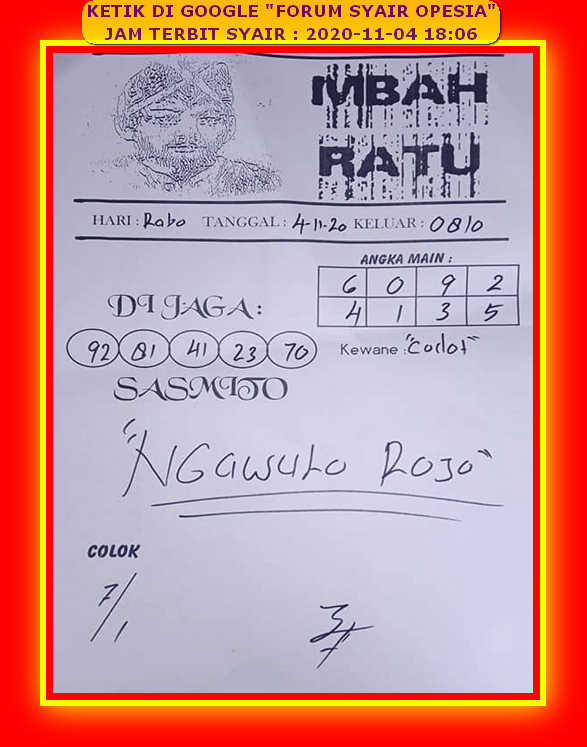 KETIK DI GOOGLE "FORUM SYAIR OPESIA"
JAM TERBIT SYAIR : 2020-11-04 18:06
MBAH
RATU
HARI : Rabo TANGGAL : 4-11-20 KELUAR : 0810
ANGKA MAIN :
6 0 9 2
4 1 3 5
DI JAGA :
92 81 41 23 70
Kewane : "Codot"
SASMITO
"NGAWULO ROJO"
COLOK
7/1